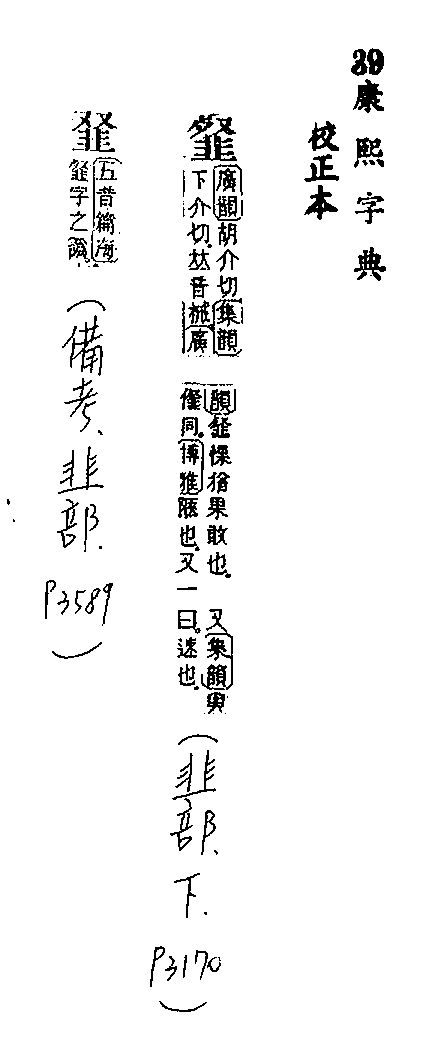 39康熙字典
校正本
韰
廣韻胡介切集韻
下介切。𠀤音械。廣
韻韰惈果敢也。又集韻與
同。博雅陿也。又一曰。速也。
(韭部.下.P3170)
五音篇海
韰字之譌。
(備考、韭部.P3589)